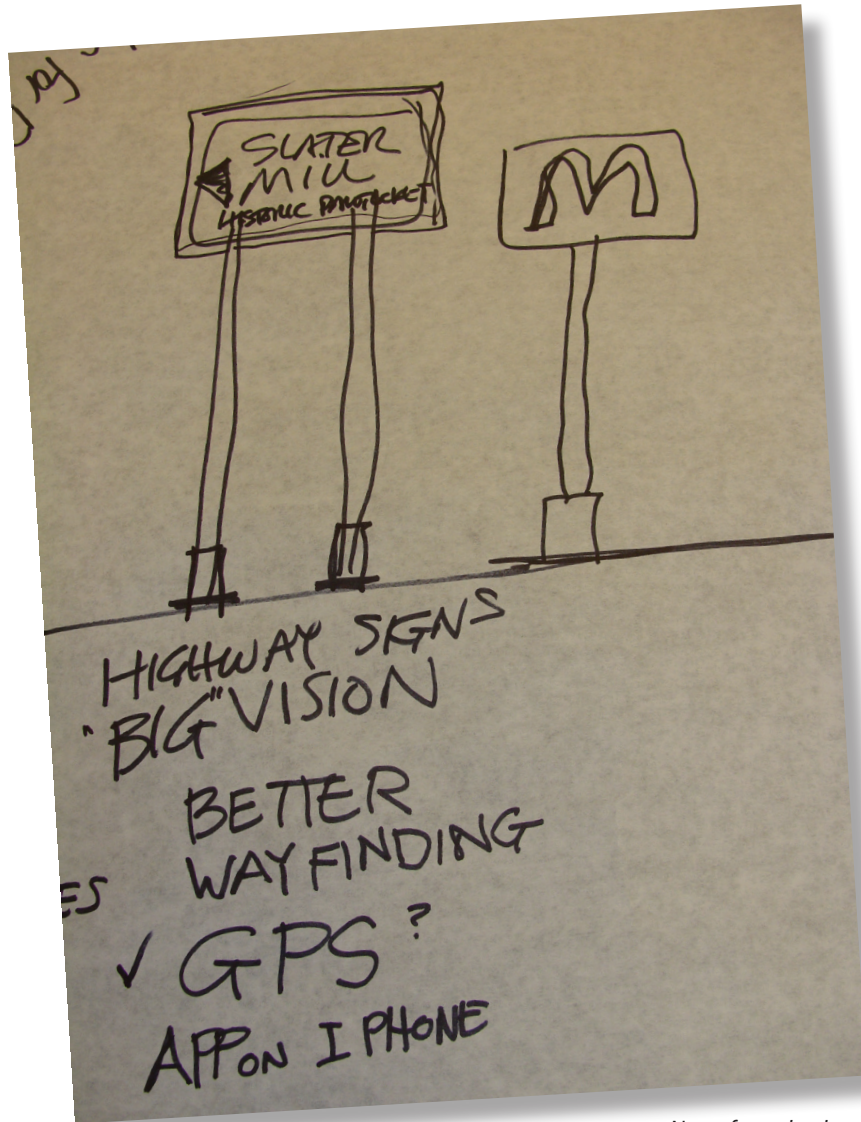 SLATER
MILL
HISTORIC PAWTUCKET
M
HIGHWAY SIGNS
"BIG" VISION
BETTER
WAYFINDING
ES
✓ GPS ?
APP ON I PHONE